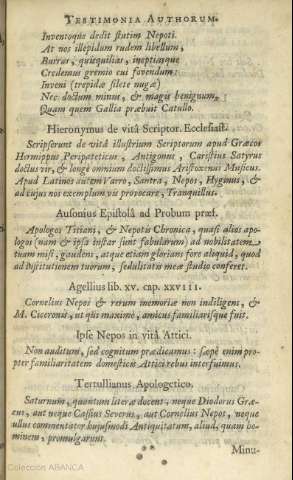 TESTIMONIA AUTHORUM.
Inventoque dedit statim Nepoti.
At nos illepidum rudem libellum,
Burras, quisquilias, ineptiasque
Credemus gremio cui fovendum:
Inveni (trepidæ silete nugæ)
Nec doctum minus, & magis benignum,
Quam quem Gallia præbuit Catullo.
Hieronymus de vitâ Scriptor. Ecclesiast.
Scripserunt de vitâ illustrium Scriptorum apud Græcos
Hermippus Peripateticus, Antigonus, Caristius Satyrus
doctus vir, & longè omnium doctissimus Aristoxenus Musicus.
Apud Latinos autem Varro, Santra, Nepos, Hyginus, &
ad cujus nos exemplum vis provocare, Tranquillus.
Ausonius Epistolâ ad Probum præf.
Apologos Titiani, & Nepotis Chronica, quasi alios apo-
logos (nam & ipsa instar sunt fabularum) ad nobilitatem
tuam misi, gaudens, atque etiam glorians fore aliquid, quod
ad institutionem tuorum, sedulitatis meæ studio conferet.
Agellius lib. xv. cap. xxviii.
Cornelius Nepos & rerum memoriæ non indiligens, &
M. Ciceronis, ut qui maximè, amicus familiarisque fuit.
Ipse Nepos in vitâ Attici.
Non auditum, sed cognitum prædicamus: sæpè enim pro-
pter familiaritatem domesticis Attici rebus interfuimus.
Tertullianus Apologetico.
Saturnum, quantum literæ docent, neque Diodorus Græ-
cus, aut neque Cassius Severus, aut Cornelius Nepos, neque
ullus commentator hujusmodi Antiquitatum, aliud, quam ho-
minem, promulgarunt.
Minu-
Colección ABANCA